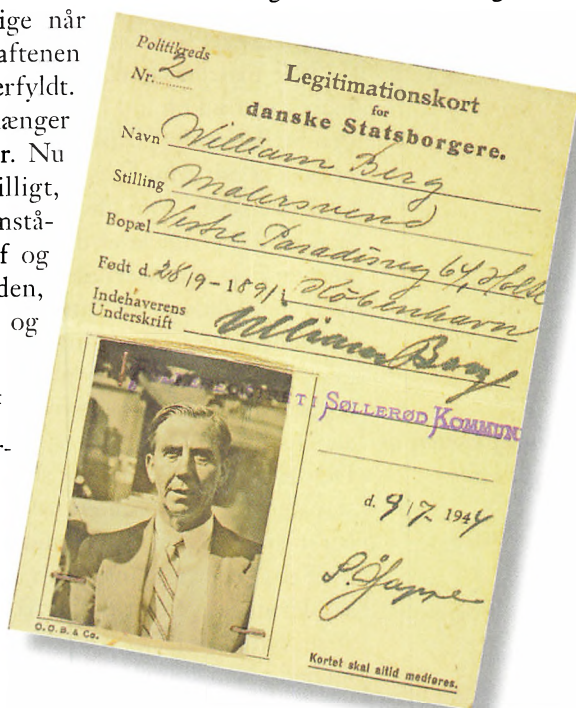 ige når
aftenen
erfyldt.
længer
r. Nu
illigt,
nstå-
f og
den,
og
r-
Politikreds
Nr. 2
Legitimationskort
for
danske Statsborgere.
Navn William Berg
Stilling Malersvend
Bopæl Vestre Paradisvej 64, Holte
Født d. 28/9-1891, København
Indehaverens
Underskrift William Berg
I SØLLERØD KOMMUN
d. 9/7 1944
O. O. B. & Co.
Kortet skal altid medføres.